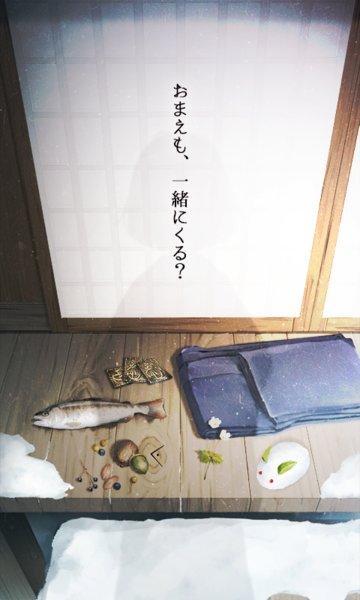 おまえも、一緒にくる？